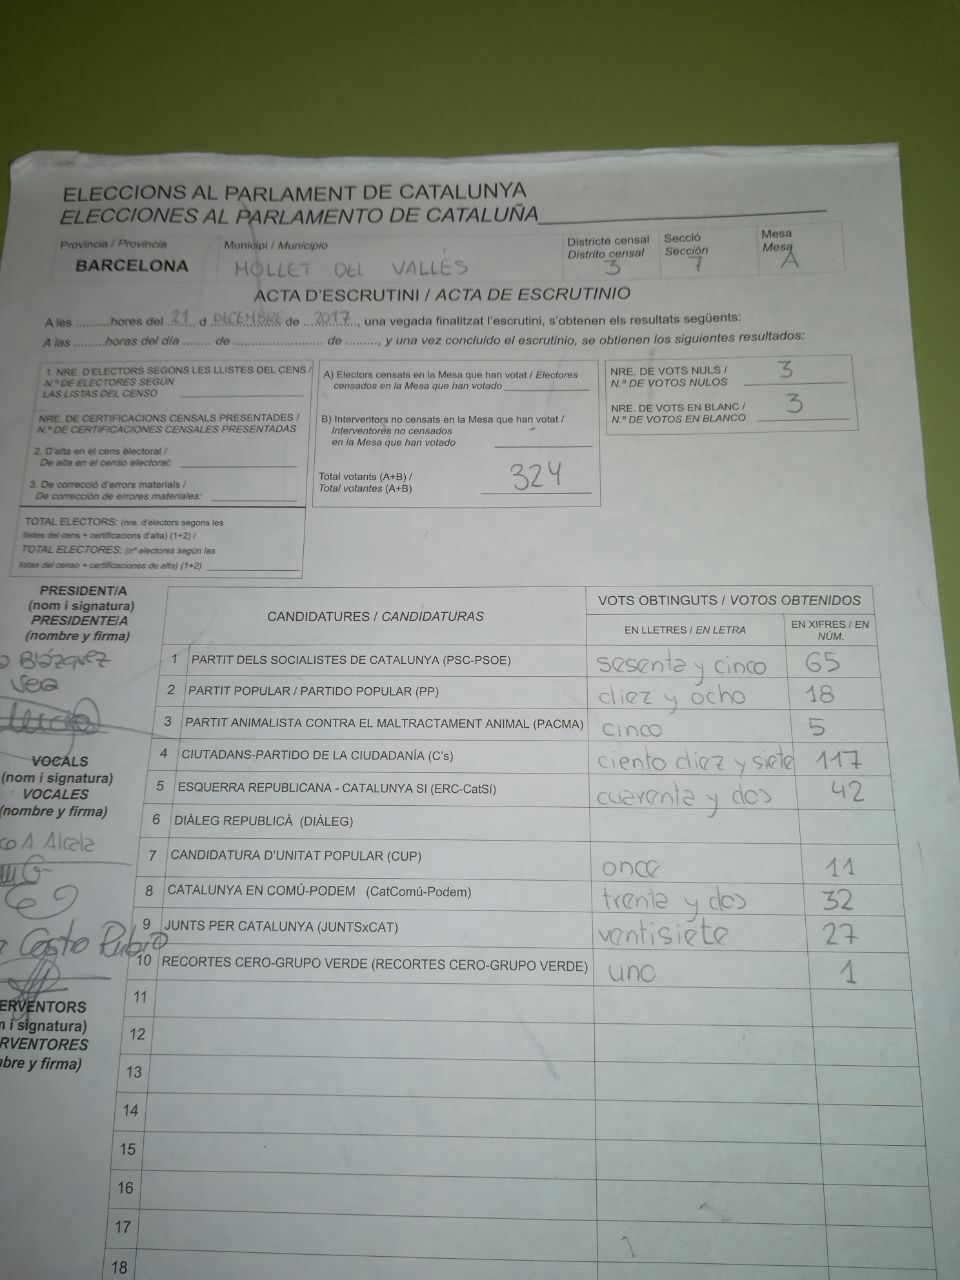 ELECCIONS AL PARLAMENT DE CATALUNYA
ELECCIONES AL PARLAMENTO DE CATALUÑA
Província / Provincia
BARCELONA
Municipi / Municipio
MOLLET DEL VALLÈS
Districte censal
Distrito censal
3
Secció
Sección
7
Mesa
Mesa
A
ACTA D'ESCRUTINI / ACTA DE ESCRUTINIO
A les ..........hores del 21 d DECEMBRE de 2017, una vegada finalitzat l'escrutini, s'obtenen els resultats següents:
A las .........horas del día ........ de ......................... de ........., y una vez concluido el escrutinio, se obtienen los siguientes resultados:
1. NRE. D'ELECTORS SEGONS LES LLISTES DEL CENS /
N.º DE ELECTORES SEGÚN
LAS LISTAS DEL CENSO
NRE. DE CERTIFICACIONS CENSALS PRESENTADES /
N.º DE CERTIFICACIONES CENSALES PRESENTADAS
2. D'alta en el cens electoral /
De alta en el censo electoral:
3. De correcció d'errors materials /
De corrección de errores materiales:
TOTAL ELECTORS: (nre. d'electors segons les
llistes del cens + certificacions d'alta) (1+2) /
TOTAL ELECTORES: (nº electores según las
listas del censo + certificaciones de alta) (1+2)
A) Electors censats en la Mesa que han votat / Electores
censados en la Mesa que han votado
B) Interventors no censats en la Mesa que han votat /
Interventores no censados
en la Mesa que han votado
-
Total votants (A+B) /
Total votantes (A+B)
324
NRE. DE VOTS NULS /
N.º DE VOTOS NULOS
3
NRE. DE VOTS EN BLANC /
N.º DE VOTOS EN BLANCO
3
PRESIDENT/A
(nom i signatura)
PRESIDENTE/A
(nombre y firma)
Blázquez
Vera
VOCALS
(nom i signatura)
VOCALES
(nombre y firma)
A. Alcala
Castro Rubio
ERVENTORS
m i signatura)
RVENTORES
bre y firma)
CANDIDATURES / CANDIDATURAS
VOTS OBTINGUTS / VOTOS OBTENIDOS
EN LLETRES / EN LETRA
EN XIFRES / EN
NÚM.
1 PARTIT DELS SOCIALISTES DE CATALUNYA (PSC-PSOE) sesenta y cinco 65
2 PARTIT POPULAR / PARTIDO POPULAR (PP) diez y ocho 18
3 PARTIT ANIMALISTA CONTRA EL MALTRACTAMENT ANIMAL (PACMA) cinco 5
4 CIUTADANS-PARTIDO DE LA CIUDADANÍA (C's) ciento diez y siete 117
5 ESQUERRA REPUBLICANA - CATALUNYA SI (ERC-CatSí) cuarenta y dos 42
6 DIÀLEG REPUBLICÀ (DIÀLEG)
7 CANDIDATURA D'UNITAT POPULAR (CUP) once 11
8 CATALUNYA EN COMÚ-PODEM (CatComú-Podem) trenta y dos 32
9 JUNTS PER CATALUNYA (JUNTSxCAT) ventisiete 27
10 RECORTES CERO-GRUPO VERDE (RECORTES CERO-GRUPO VERDE) uno 1
11
12
13
14
15
16
17
18